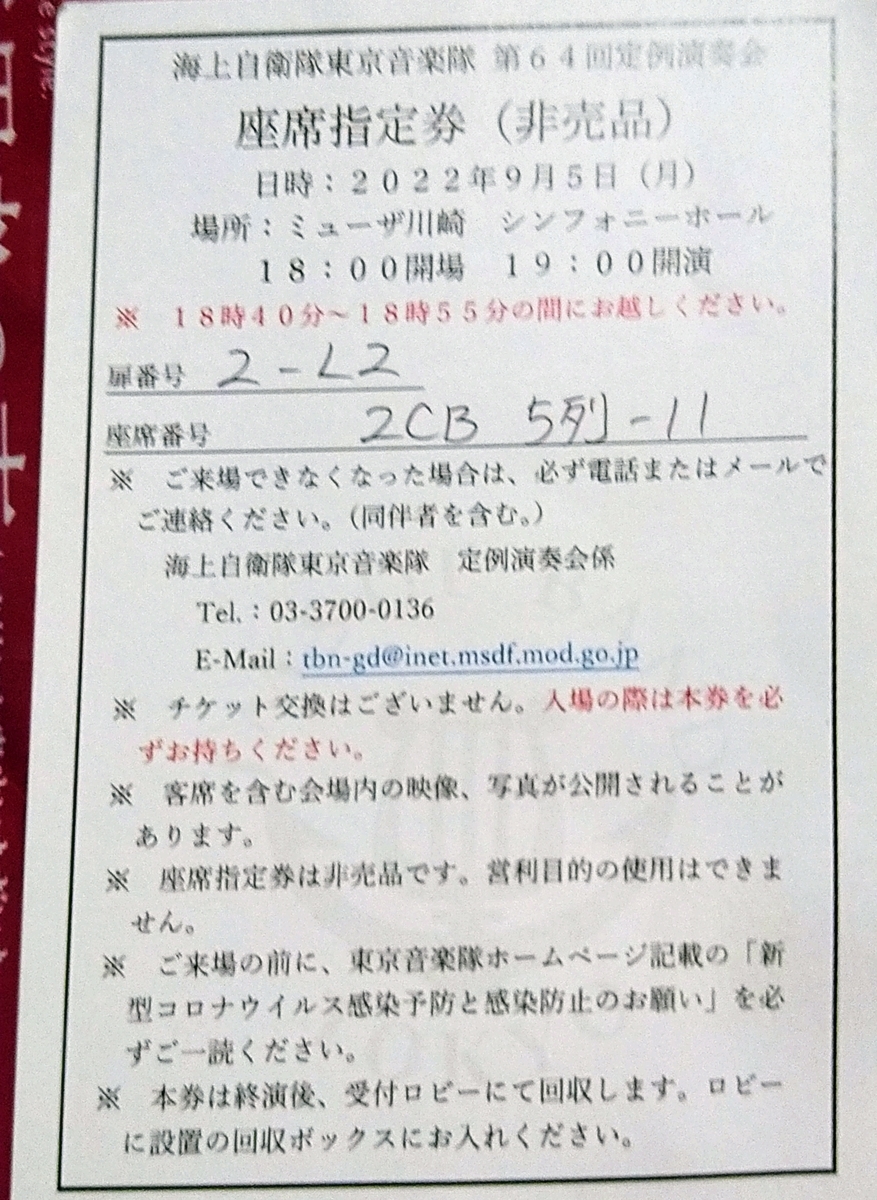 海上自衛隊東京音楽隊 第６４回定例演奏会
座席指定券（非売品）
日時：２０２２年９月５日（月）
場所：ミューザ川崎　シンフォニーホール
１８：００開場　１９：００開演
※　１８時４０分～１８時５５分の間にお越しください。
扉番号　2-L2
座席番号　2CB 5列-11
※　ご来場できなくなった場合は、必ず電話またはメールで
ご連絡ください。（同伴者を含む。）
海上自衛隊東京音楽隊　定例演奏会係
Tel.：03-3700-0136
E-Mail：tbn-gd@inet.msdf.mod.go.jp
※　チケット交換はございません。入場の際は本券を必
ずお持ちください。
※　客席を含む会場内の映像、写真が公開されることが
あります。
※　座席指定券は非売品です。営利目的の使用はできま
せん。
※　ご来場の前に、東京音楽隊ホームページ記載の「新
型コロナウイルス感染予防と感染防止のお願い」を必
ずご一読ください。
※　本券は終演後、受付ロビーにて回収します。ロビー
に設置の回収ボックスにお入れください。